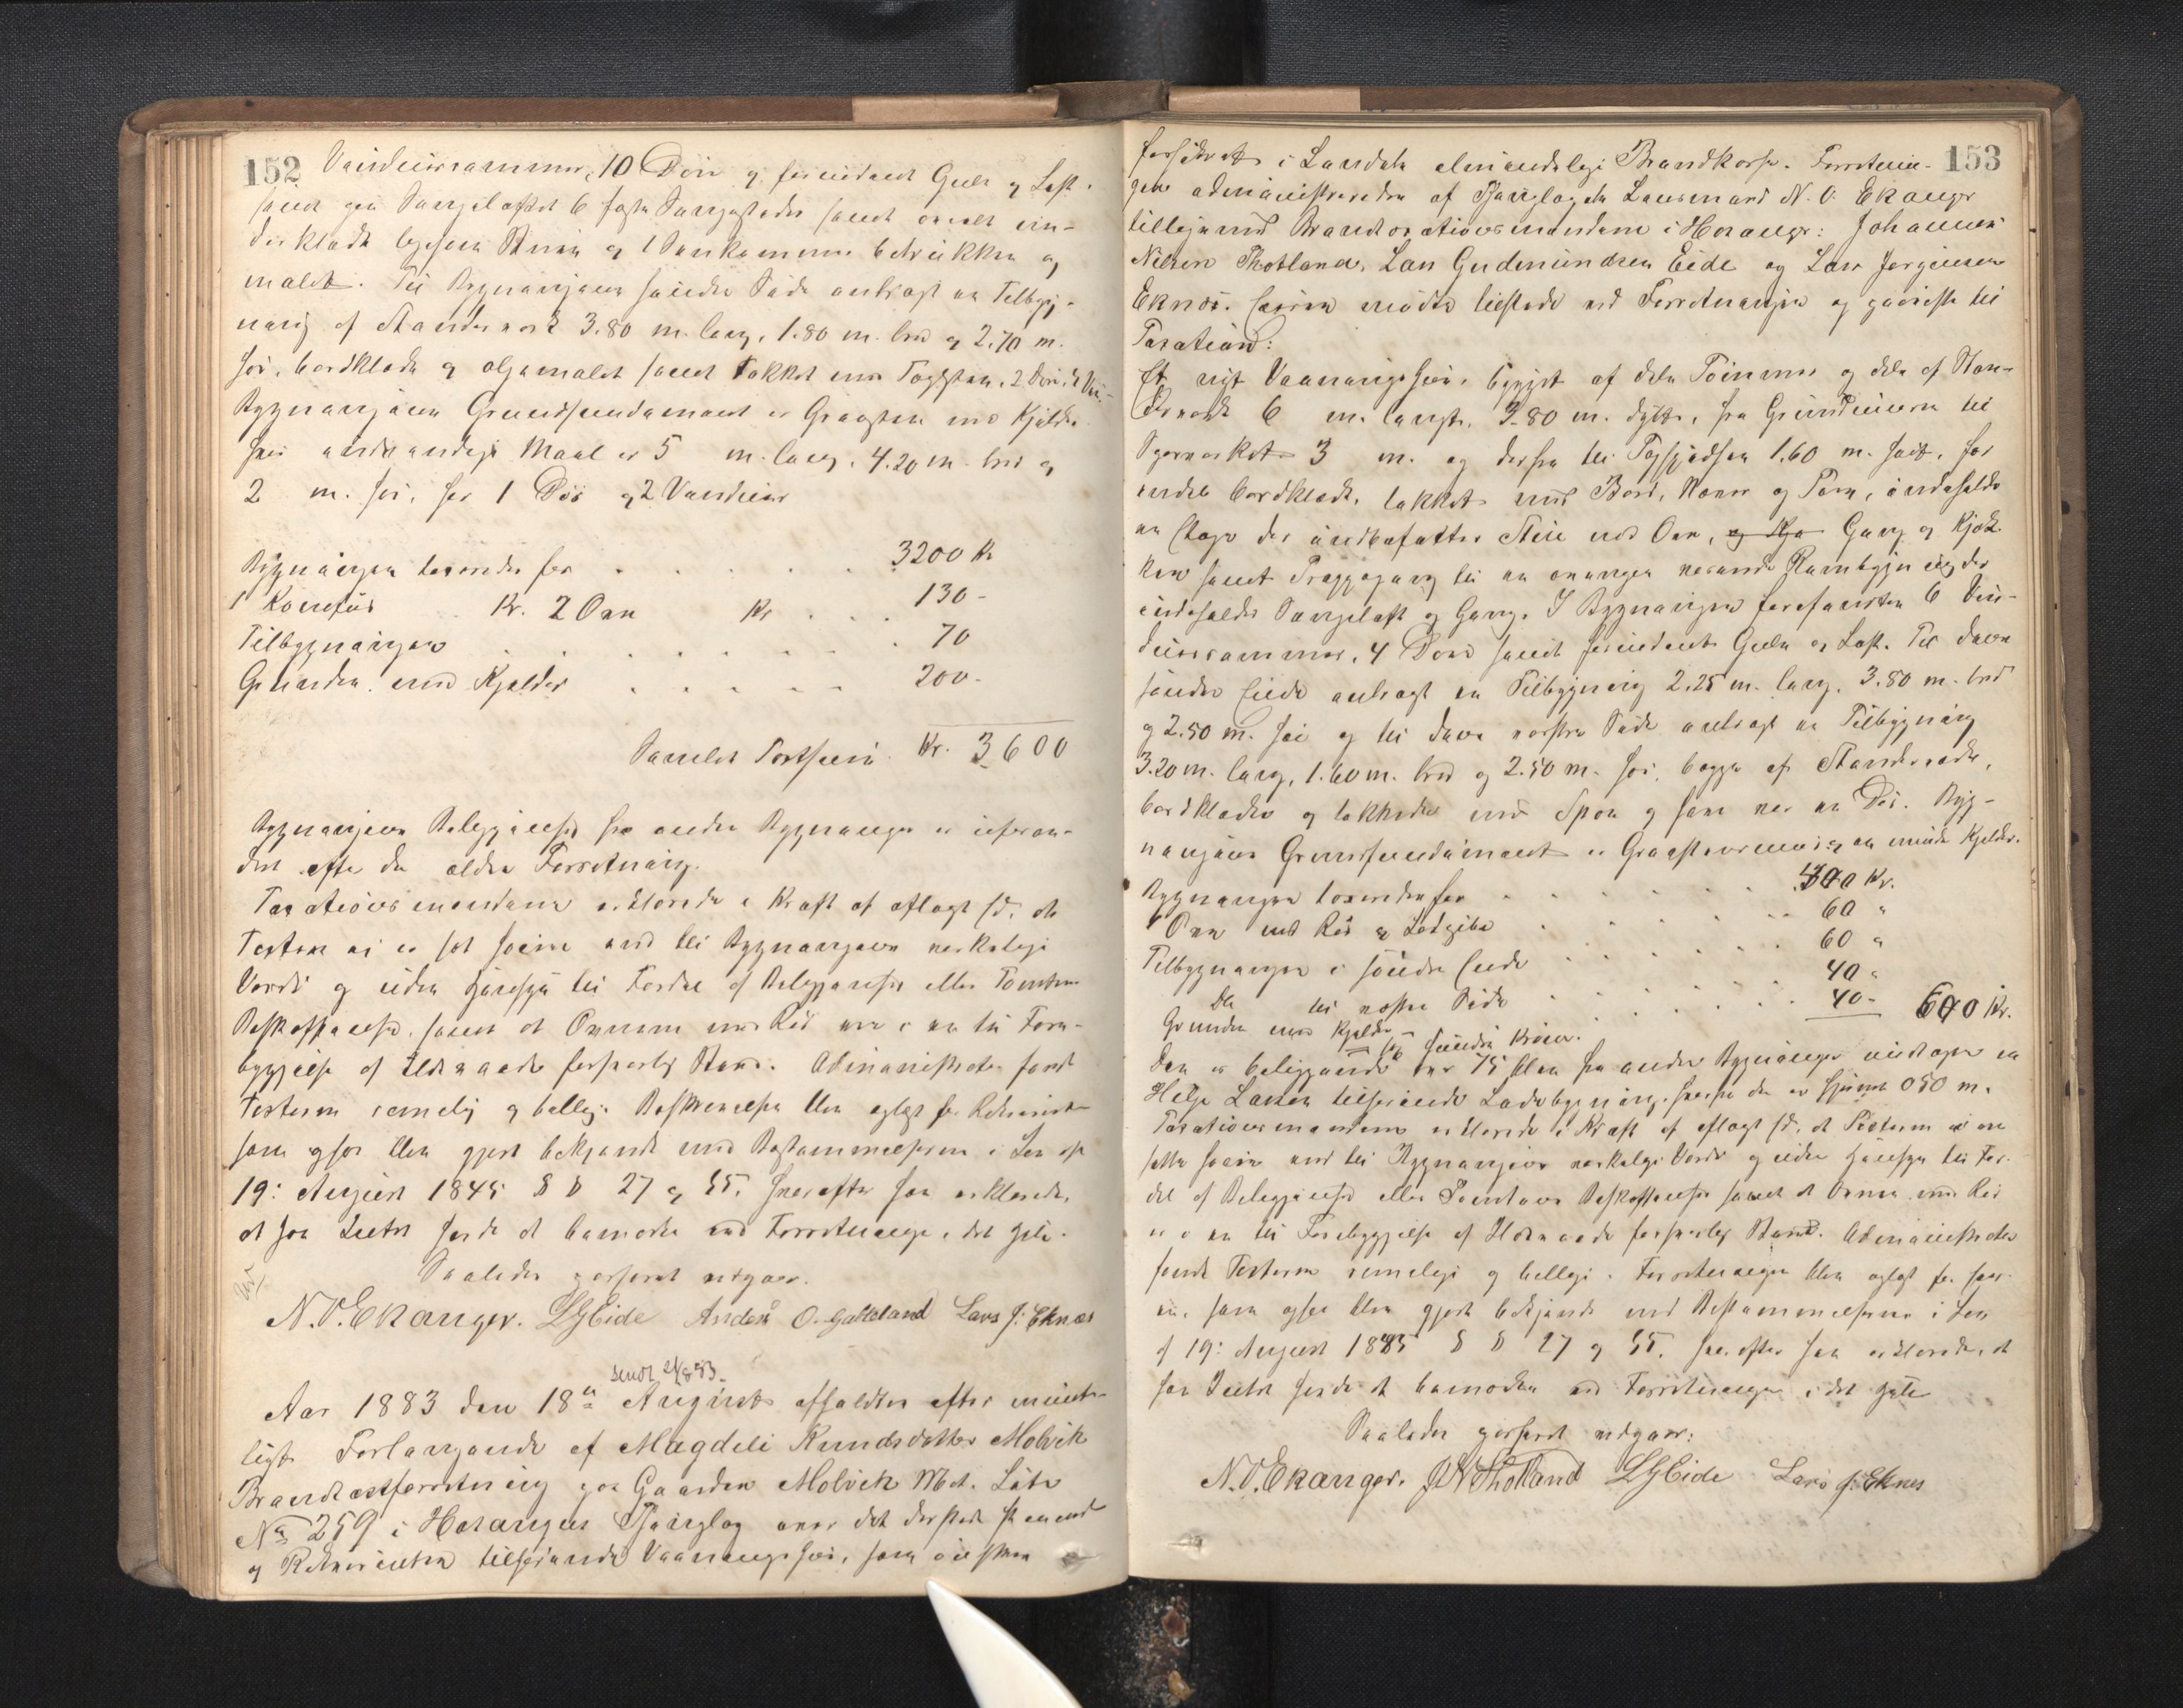 152
Vinduesrammer, 10 Döre og fornödent Gulv og Loft,
samt paa Sengeloftet 6 faste Sengesteder samt overalt inn-
derklædt ligesom Stuen og 1 Senkammer betrukken og
malet. Til Bygningens söndre Side anbragt en Tilbyg-
ning af Standerverk 3.80 m. lang, 1.80 m. bred og 2.70 m.
höi, bordklædt og oljemalet samt takket med Tagsten, 2 Döre,
Bygningens Grundfundament er Graasten med Kjelder
hvis indvendige Maal er 5 m. lang, 4.20 m. bred og
2 m. höi, har 1 Dör og 2 Vinduer
Bygningen taxeredes for . . . . . 3200 Kr
1 Komfur Kr. 2 Ovne Kr . . . 130 -
Tilbygningen . . . . . . . 70
Grunden med Kjelder . . . . . 200 -
Samlet Taxtsum Kr. 3600
Bygningens Beliggenhed fra andre Bygninger er uforan-
dret efter den ældre Forretning.
Taxationsmændene erklærede i Kraft af aflagt Ed, at
Taxten ei er sat höiere end til Bygningens verkelige
Værdi og uden Hensyn til Fordel af Beliggenhed eller Tomtens
Beskaffenhed, samt at Ovnene med Rör ere i en til Fore-
byggelse af Ildsvaade forsvarlig Stand. Administrator fandt
Taxterne rimelig og billig. Beskrivelsen blev oplæst for Rekvirenten
som ogsaa blev gjort bekjendt med Bestemmelserne i Lov af
19: August 1845 § § 27 og 55. hvorefter han erklærede,
at han Intet havde at bemærke ved Forretningen, i det Hele.
Saaledes passeret vidner.
N.O. Ekanger. LGEide Anders O. Galteland Lars J: Eknæs
sendt 24/8 83.
Aar 1883 den 18de August afholdtes efter mundt-
ligt Forlangende af Magdeli Knudsdatter Molvik
Brandtaxtforretning paa Gaarden Molvik Mat. Löbe
No 259 i Hosanger Thinglag over det dersteds staaende
og Rekvirenten tilhörende Vaaningshus, som önskes
153
forsikret i Landets almindelige Brandkasse. Forretnin-
gen administreredes af Thinglagets Lensmand N. O. Ekanger
tilligemed Brandtaxationsmændene i Hosanger: Johannes
Nielsen Thotland, Lars Gudmundsen Eide og Lars Jørgensen
Eknæs. Hvem mödte tilstede ved Forretningen og gaves til
Taxation:
Et nyt Vaaningshus, bygget af dels Tömmer og dels af Stan-
derverk 6 m. langt, 3.80 m. dybt, fra Grundmuren til
Sperreverket 3 m. og derfra til Tagspidsen 1.60 m. höit, for
endel bordklædt, takket med Bord, Næver og Torv, indeholder
en Etage der indbefatter Stue med Ovn, Gang og Kjök-
ken samt Trappegang til en ovenpaa værende Rambygning der
indeholder Sengeloft og Gang. I Bygningen forefindes 6 Vin-
duesrammer, 4 Döre samt fornödent Gulv og Loft. Til dens
söndre Ende anbragt en Tilbygning 2.25 m. lang, 3.80 m. bred
og 2.50 m. höi og til dens nordre Side anbragt en Tilbygning
3.20 m. lang, 1.60 m. bred og 2.50 m. höi, begge af Standerverk,
bordklædte og takkede med Spon og hver har en Dör. Byg-
ningens Grundfundament er Graastensmur og en mindre Kjelder.
Bygningen taxeredes for . . . . . 400 Kr.
1 Ovn med Rör og Ledpibe . . . . 60 "
Tilbygningen i söndre Ende . . . . 60 "
Do til nordre Side . . . . 40 "
Grunden med Kjelder . . . . 40 - 600 Kr.
Sex hundre Kroner.
Den er beliggende over 75 Alen fra andre Bygninger undtagen en
Helje Larsen tilhörende Ladebygning, hvorfra den er fjernet 050 m.
Taxationsmændene erklærede i Kraft af aflagt Ed, at Taxterne ei ere
satte höiere end til Bygningens verkelige Værdi og uden Hensyn til For-
del af Beliggenhed eller Tomtens Beskaffenhed samt at Ovnen med Rör
er i en til Forebyggelse af Ildsvaade forsvarlig Stand. Administrator
fandt Taxterne rimelige og billige. Forretningen blev oplæst for
som ogsaa blev gjort bekjendt med Bestemmelserne i Lov
af 19: August 1845 § § 27 og 55. hvorefter han erklærede at
han Intet havde at bemærke ved Forretningen i det Hele
Saaledes passeret vidner:
N.O. Ekanger. JN Thotland LGEide Lars J: Eknes